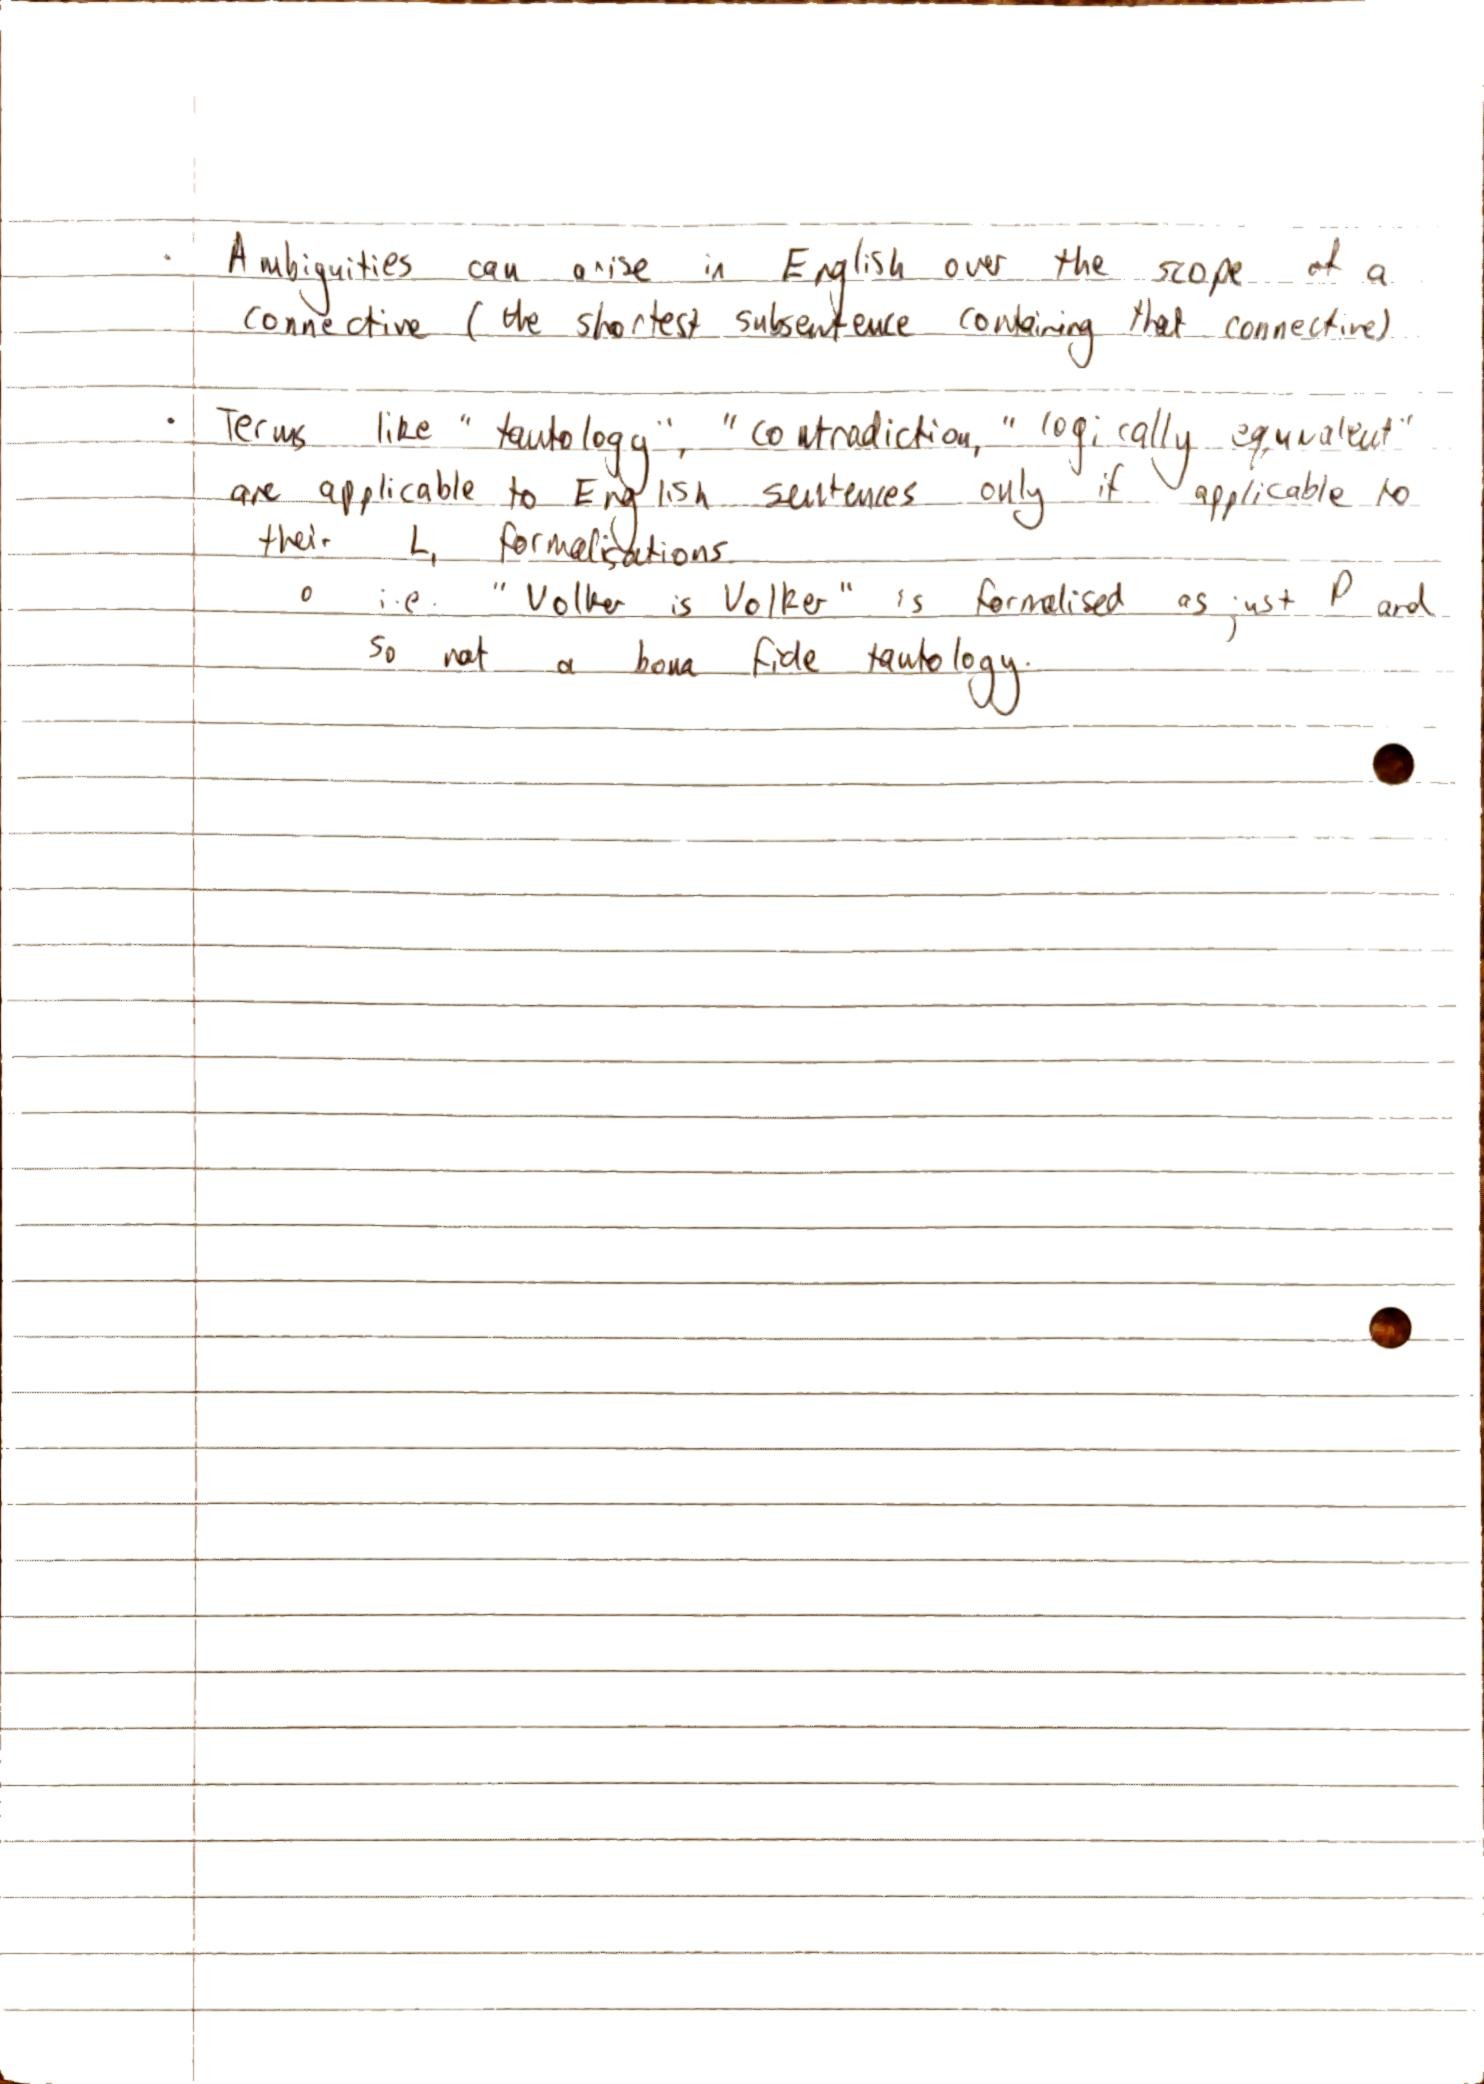 · Ambiguities can arise in English over the scope of a
connective (the shortest subsentence containing that connective)
· Terms like "tautology", "contradiction, "logically equvalent"
are applicable to English sentences only if applicable to
their L₁ formalisations
o i.e. "Volker is Volker" is formalised as just P and
so not a bona fide tautology.